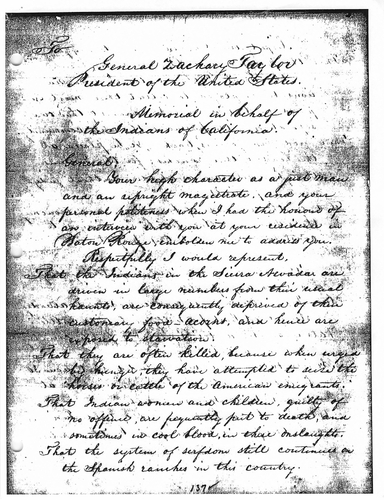 To
General Zachary Taylor
President of the United States.
Memorial in behalf of
the Indians of California
General,
Your high character as a just man
and an upright magistrate, and your
personal politeness when I had the honour of
an interview with you at your residence in
Baton Rouge, embolden me to address you.
Respectfully I would represent,
That the Indians in the Sierra Nevadas are
driven in large numbers from their usual
haunts, are consequently deprived of their
customary food - acorns, and hence are
exposed to starvation.
That they are often killed, because when urged
by hunger, they have attempted to seize the
horses or cattle of the American emigrants.
That Indian women and children, guilty of
no offence, are frequently put to death, and
sometimes in cool blood, in these onslaughts.
That the system of serfdom still continues on
the Spanish ranches in this country.